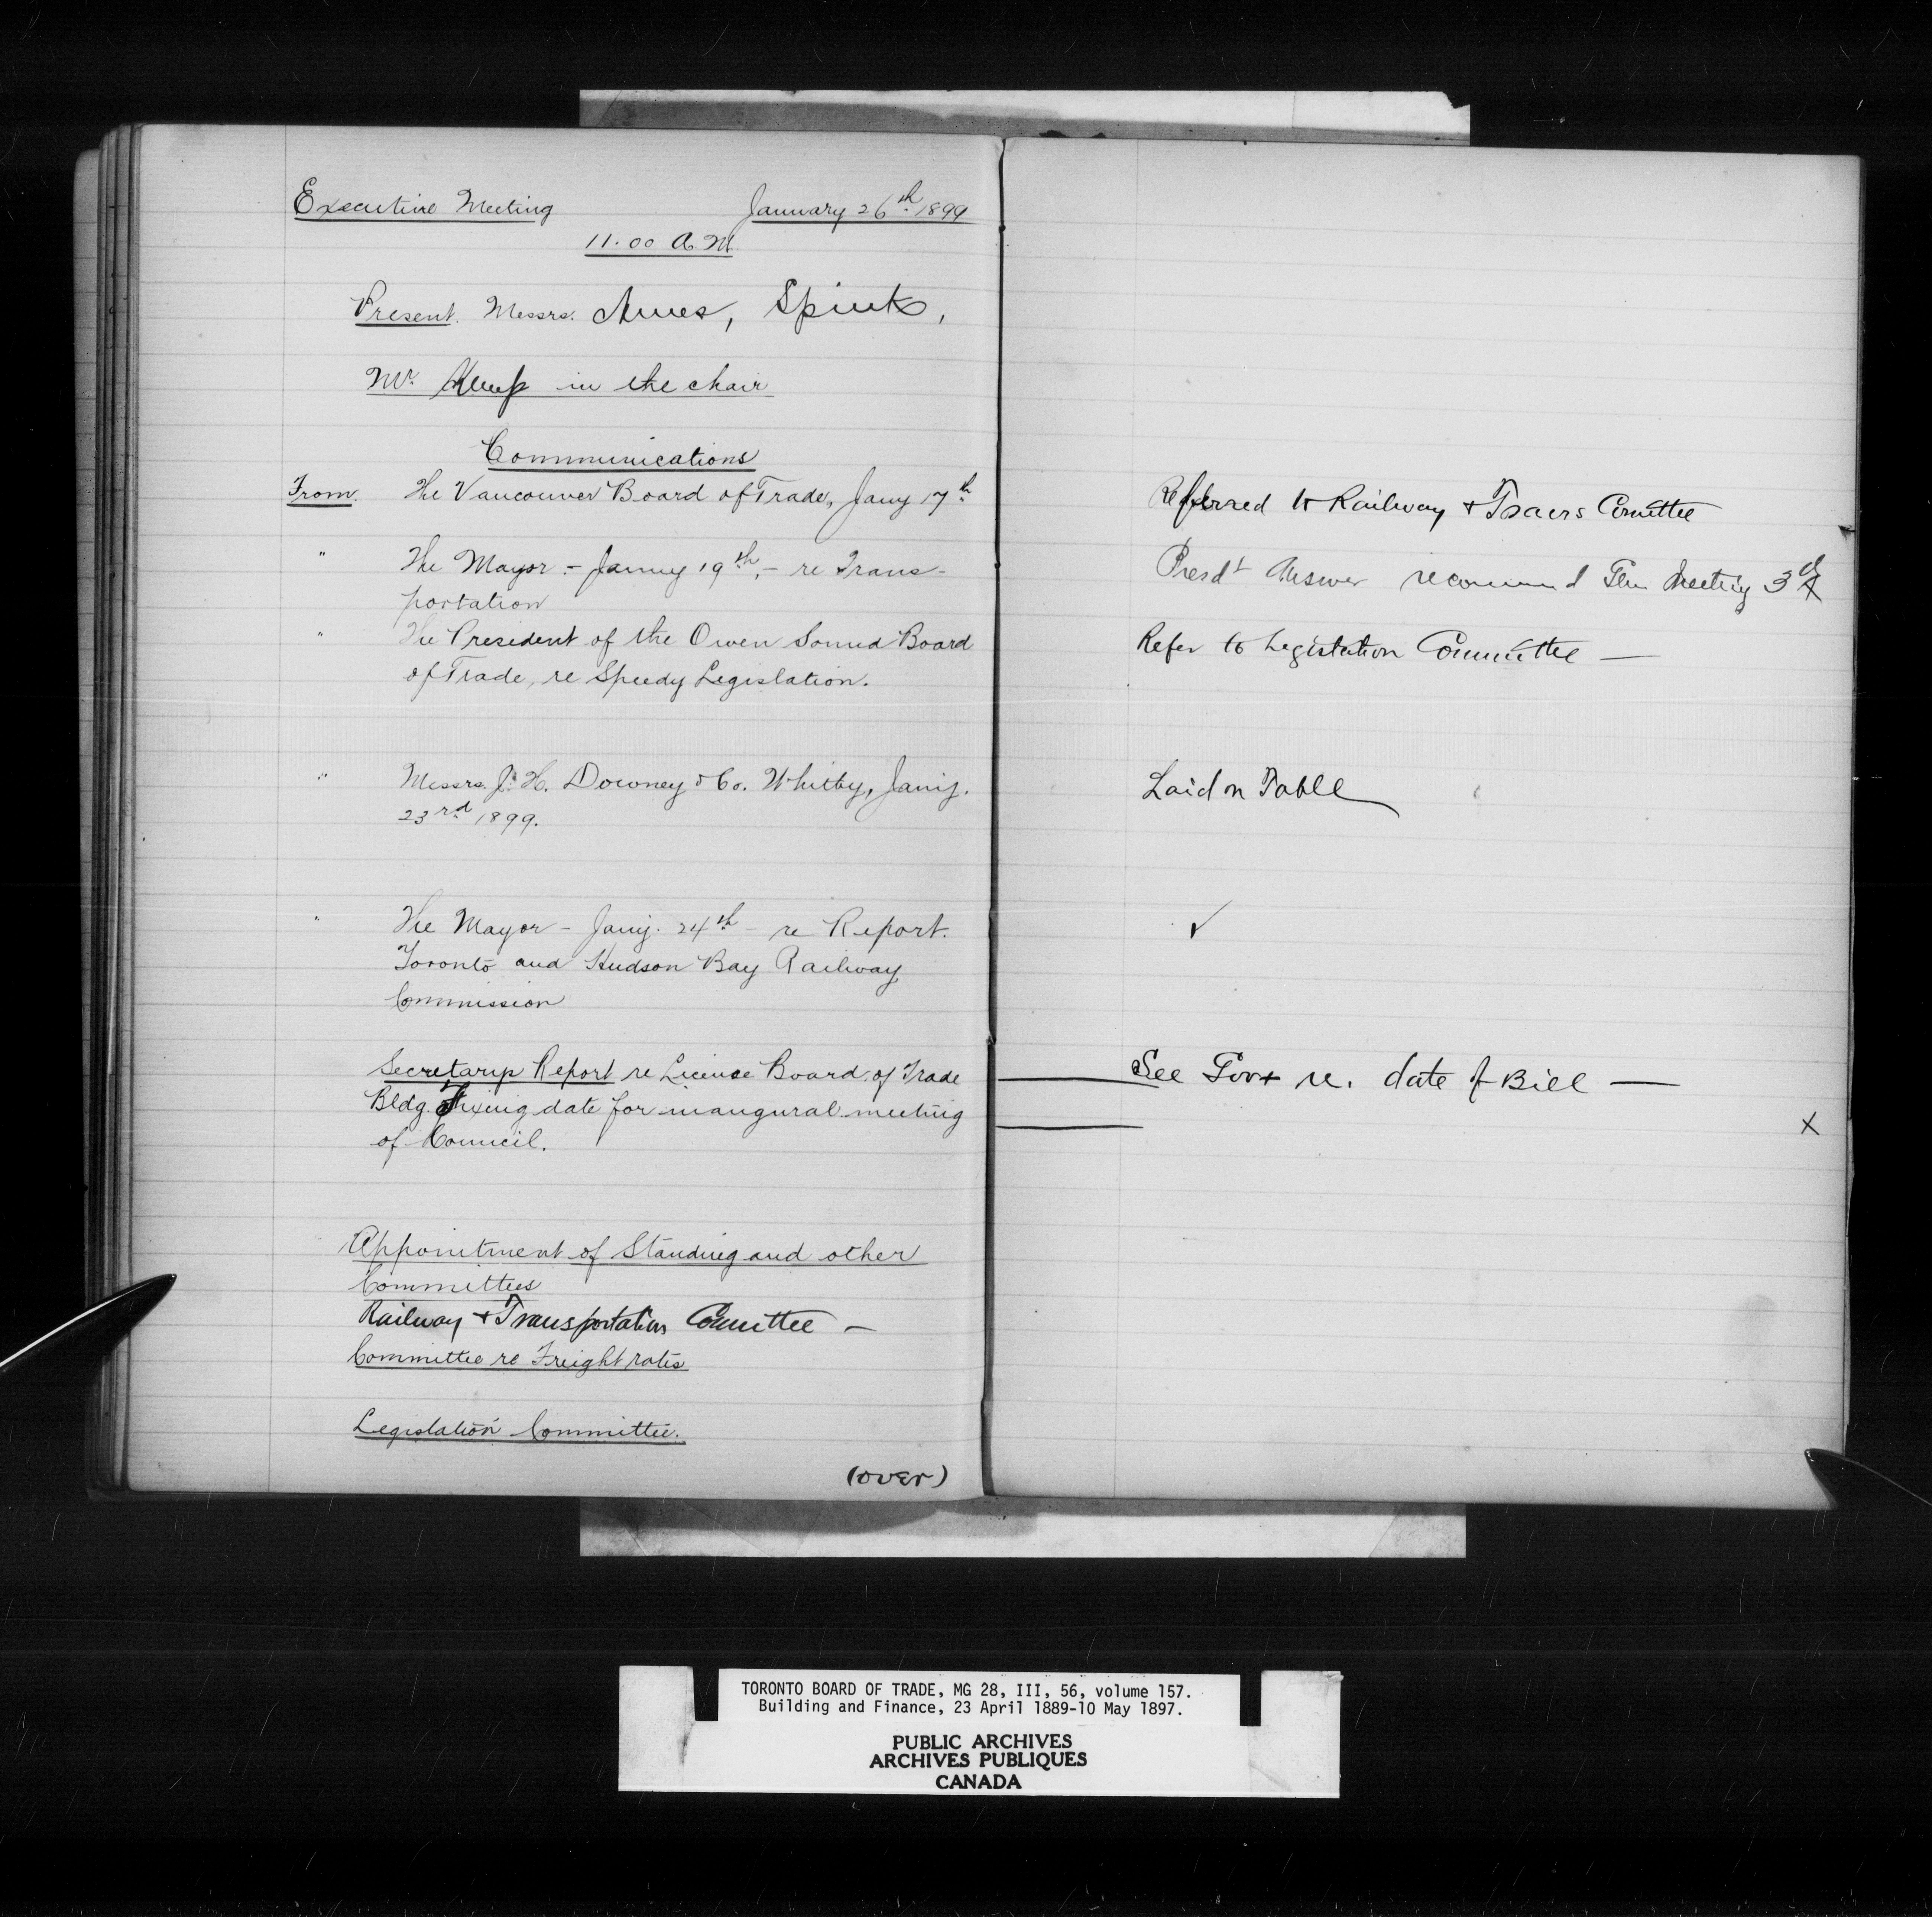 Executive Meeting January 26th 1899
11.00 A.M.
Present. Messrs. Ames, Spink,
Mr. Kemp in the chair
Communications
From. The Vancouver Board of Trade, Jany 17th
" The Mayor - January 19th, - re Trans-
portation
" The President of the Owen Sound Board
of Trade, re Speedy Legislation.
" Messrs. J. H. Downey & Co. Whitby, Jany.
23rd 1899.
" The Mayor - Jany. 24th - re Report.
Toronto and Hudson Bay Railway
Commission
Secretarys Report re License Board of Trade
Bldg. Fixing date for inaugural meeting
of Council.
Appointment of Standing and other
Committees
Railway + Transportation Committee -
Committee re Freight rates
Legislation Committee.
(over)
Referred to Railway + Trans Comittee
Presd't Answer recommend Meeting 3d
Refer to Legislation Committee -
Laid on Table
✓
See re. date of Bill -
X
TORONTO BOARD OF TRADE, MG 28, III, 56, volume 157.
Building and Finance, 23 April 1889-10 May 1897.
PUBLIC ARCHIVES
ARCHIVES PUBLIQUES
CANADA